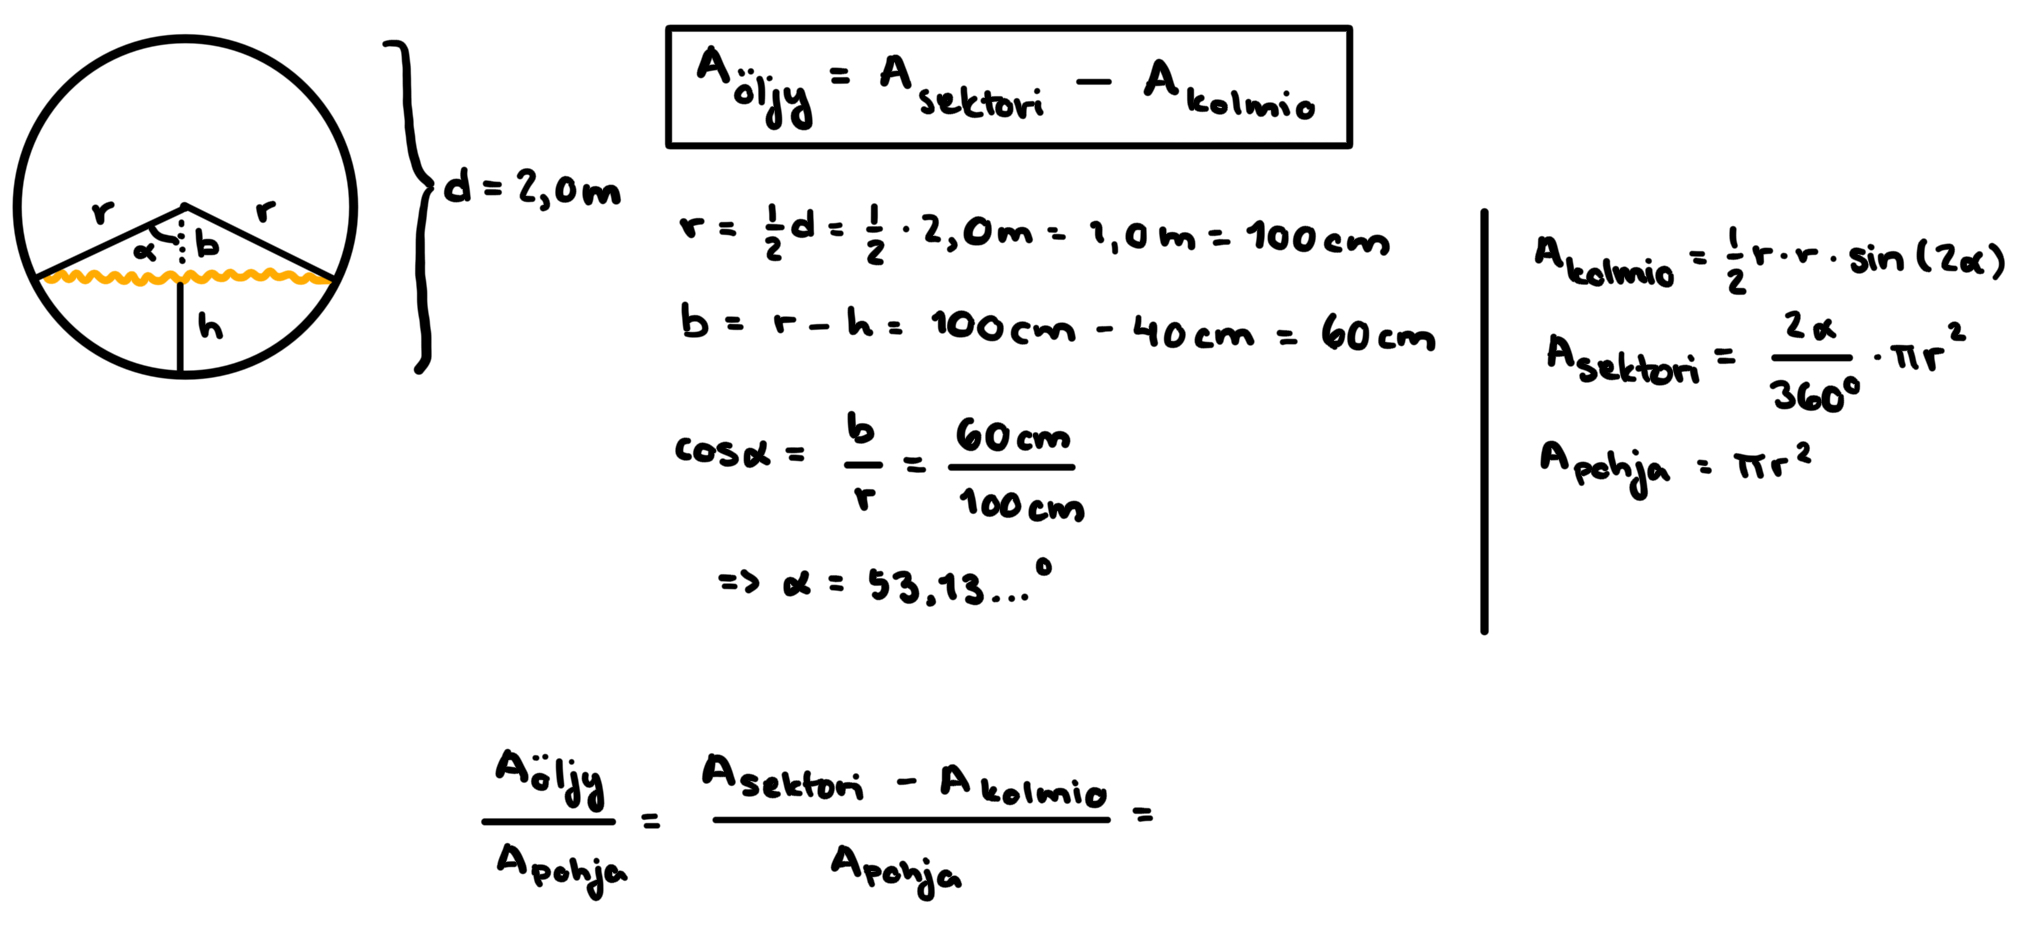 A öljy = A sektori − A kolmio
d = 2,0m
r r
α b
h
r = 1/2 d = 1/2 · 2,0m = 1,0m = 100cm
b = r − h = 100cm − 40cm = 60cm
cosα = b/r = 60cm/100cm
=> α = 53,13...°
A kolmio = 1/2 r · r · sin(2α)
A sektori = 2α/360° · πr²
A pohja = πr²
A öljy / A pohja = (A sektori − A kolmio) / A pohja =